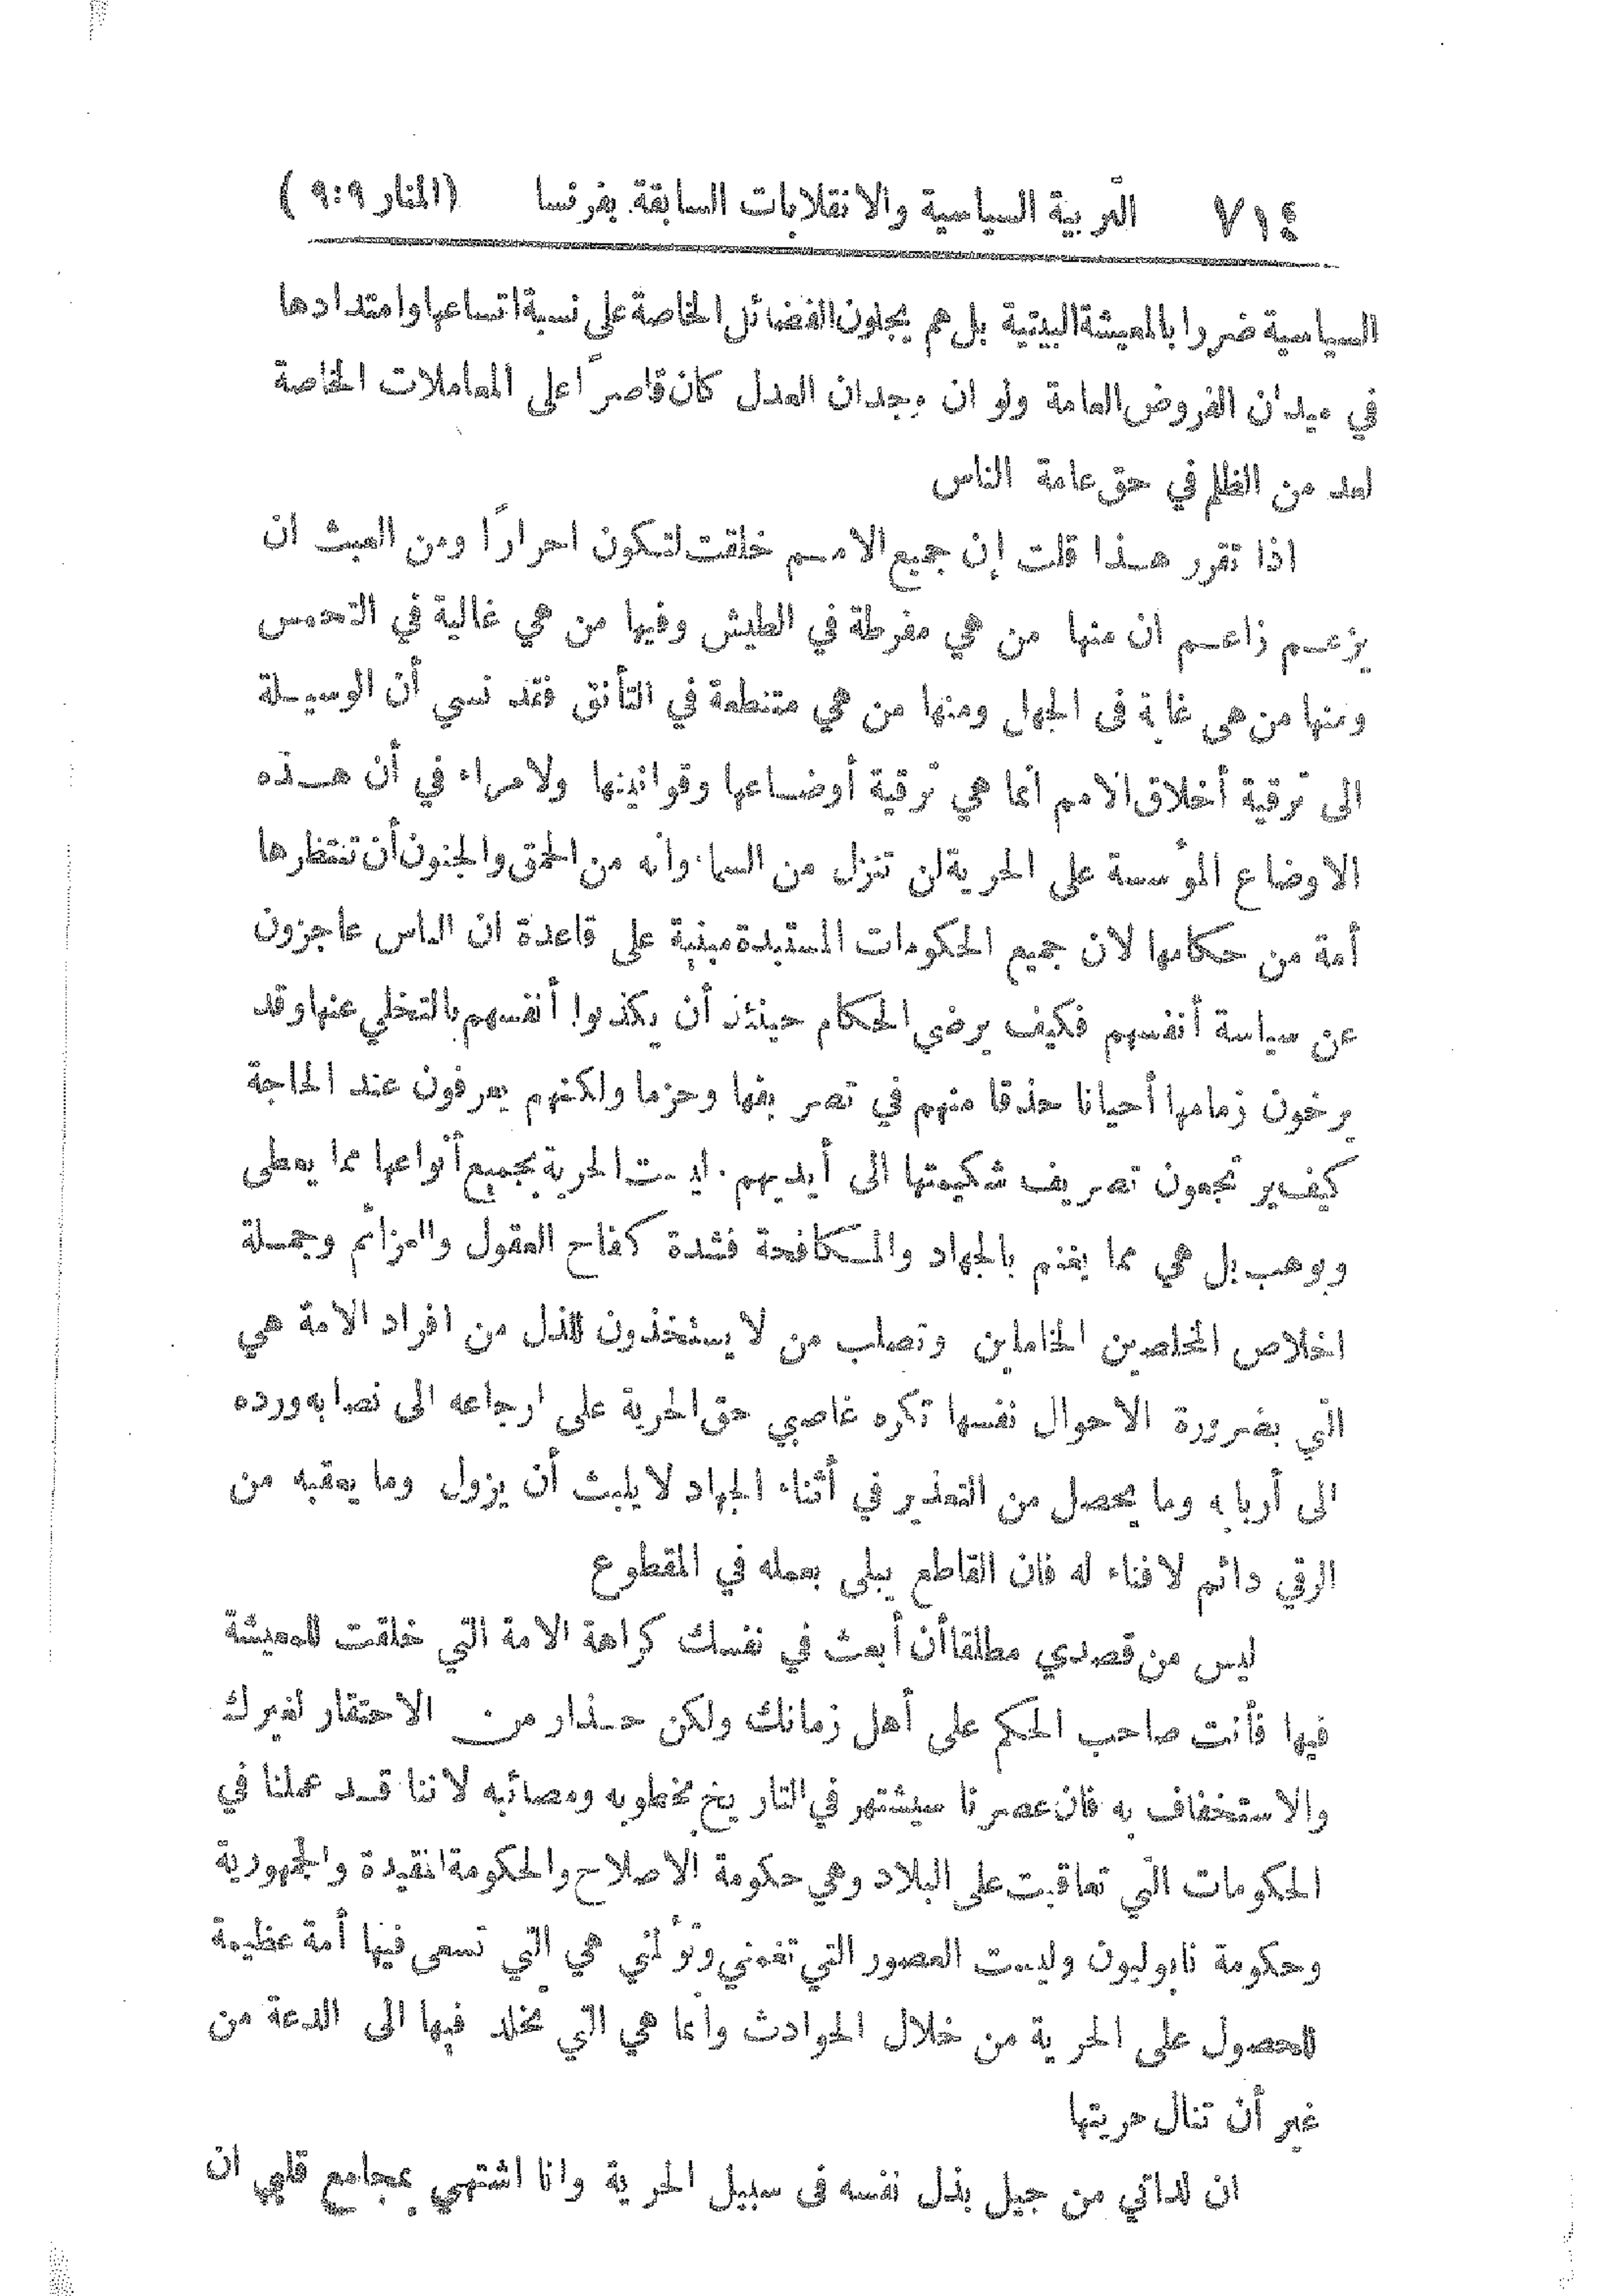 ٧١٤ التربية السياسية والانقلابات السابقة بفرنسا (المنار ٩:٩)
السياسية ضررا بالمعيشة البيتية بل هم يجلون الفضائل الخاصة على نسبة اتساعها وامتدادها
في ميدان الفروض العامة ولو ان وجدان العدل كان قاصرًا على المعاملات الخاصة
لعد من الظلم في حق عامة الناس
اذا تقرر هذا قلت إن جميع الامم خلقت لتكون احرارًا ومن العبث ان
يزعم زاعم ان منها من هي مفرطة في الطيش وفيها من هي غالية في التحمس
ومنها من هي غاية في الجهل ومنها من هي متنطعة في التأنق فقد نسي أن الوسيلة
الى ترقية أخلاق الامم انما هي ترقية أوضاعها وقوانينها ولا مراء في أن هذه
الاوضاع المؤسسة على الحرية لن تنزل من السماء وانه من الحمق والجنون أن تنتظرها
أمة من حكامها لان جميع الحكومات المستبدة مبنية على قاعدة ان الناس عاجزون
عن سياسة أنفسهم فكيف يرضي الحكام حينئذ أن يكذبوا أنفسهم بالتخلي عنها وقد
يرخون زمامها أحيانا حذقا منهم في تصريفها وحزما ولكنهم يعرفون عند الحاجة
كيف يرجعون تصريف شكيمتها الى أيديهم . ليست الحرية بجميع أنواعها مما يعطى
ويوهب بل هي مما يغنم بالجهاد والمكافحة فشدة كفاح العقول والعزائم وجملة
اخلاص المخلصين الخاملين وتصلب من لا يستخذون للذل من افراد الامة هي
التي بضرورة الاحوال نفسها تكره غاصبي حق الحرية على ارجاعه الى نصابه ورده
الى أربابه وما يحصل من التعذير في أثناء الجهاد لا يلبث أن يزول وما يعقبه من
الرقي دائم لا فناء له فان القاطع يبلى بعمله في المقطوع
ليس من قصدي مطلقا أن أبعث في نفسك كراهة الامة التي خلقت للمعيشة
فيها فأنت صاحب الحكم على أهل زمانك ولكن حذار من الاحتقار لغيرك
والاستخفاف به فان عصرنا سيشتهر في التاريخ بخطوبه ومصائبه لاننا قد عملنا في
الحكومات التي تعاقبت على البلاد وهي حكومة الاصلاح والحكومة المقيدة والجمهورية
وحكومة نابوليون وليست العصور التي تغمني وتؤلمني هي التي تسعى فيها أمة عظيمة
للحصول على الحرية من خلال الحوادث وانما هي التي تخلد فيها الى الدعة من
غير أن تنال حريتها
ان لداتي من جيل بذل نفسه في سبيل الحرية وانا اشتهي بمجامع قلبي ان